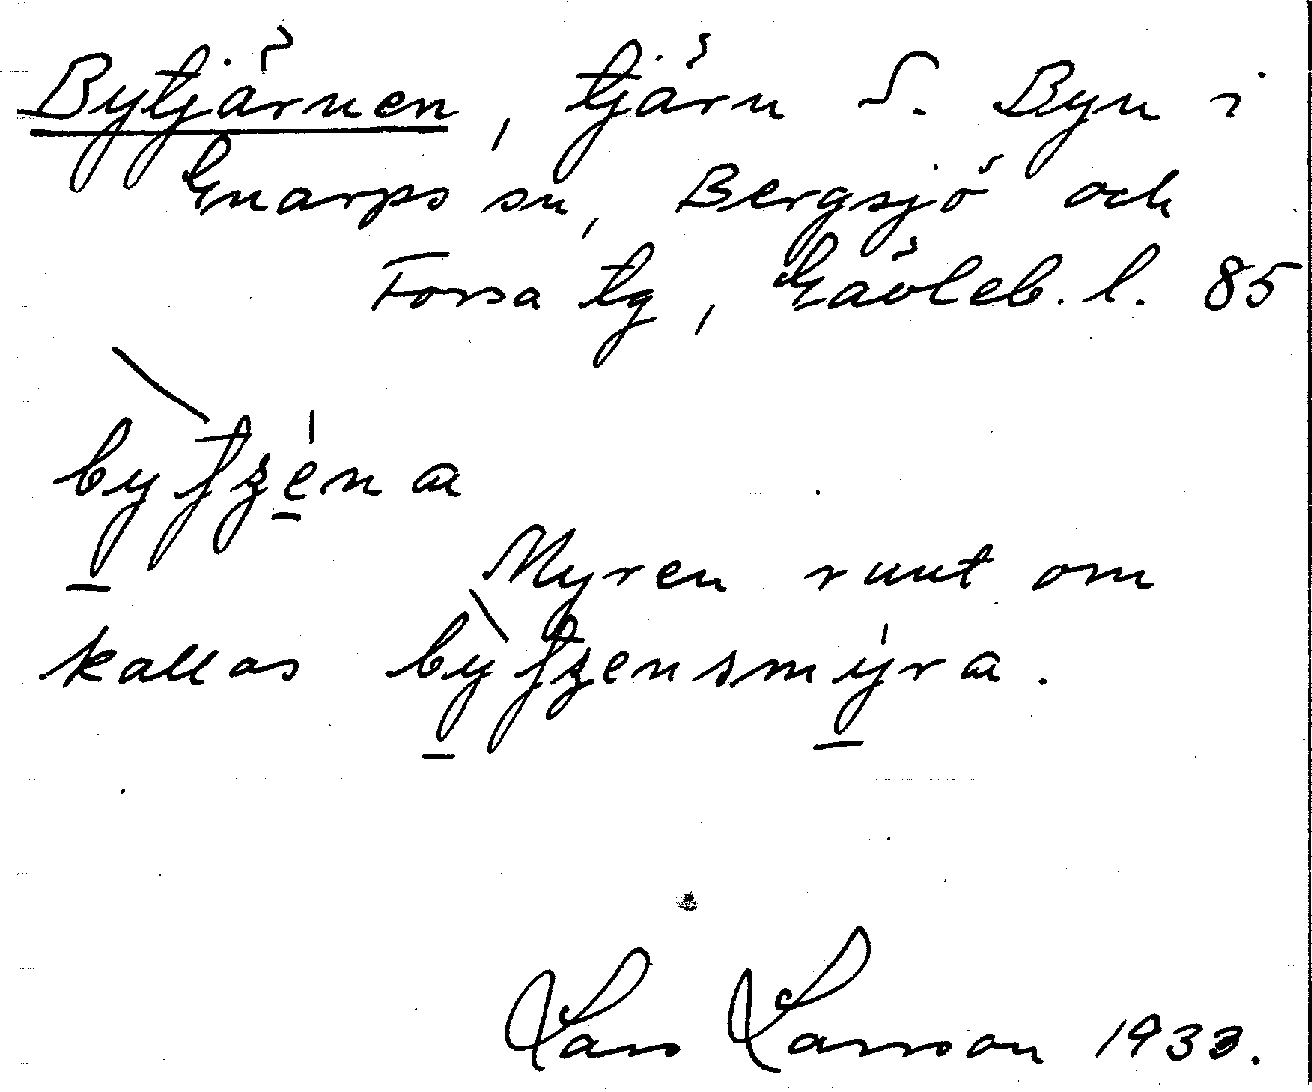 Bytjärnen, tjärn S. Byn i
Gnarps sn, Bergsjö och
Forsa tg, Gävleb. l. 85
Myren runt om
kallas
Lars Larsson 1933.